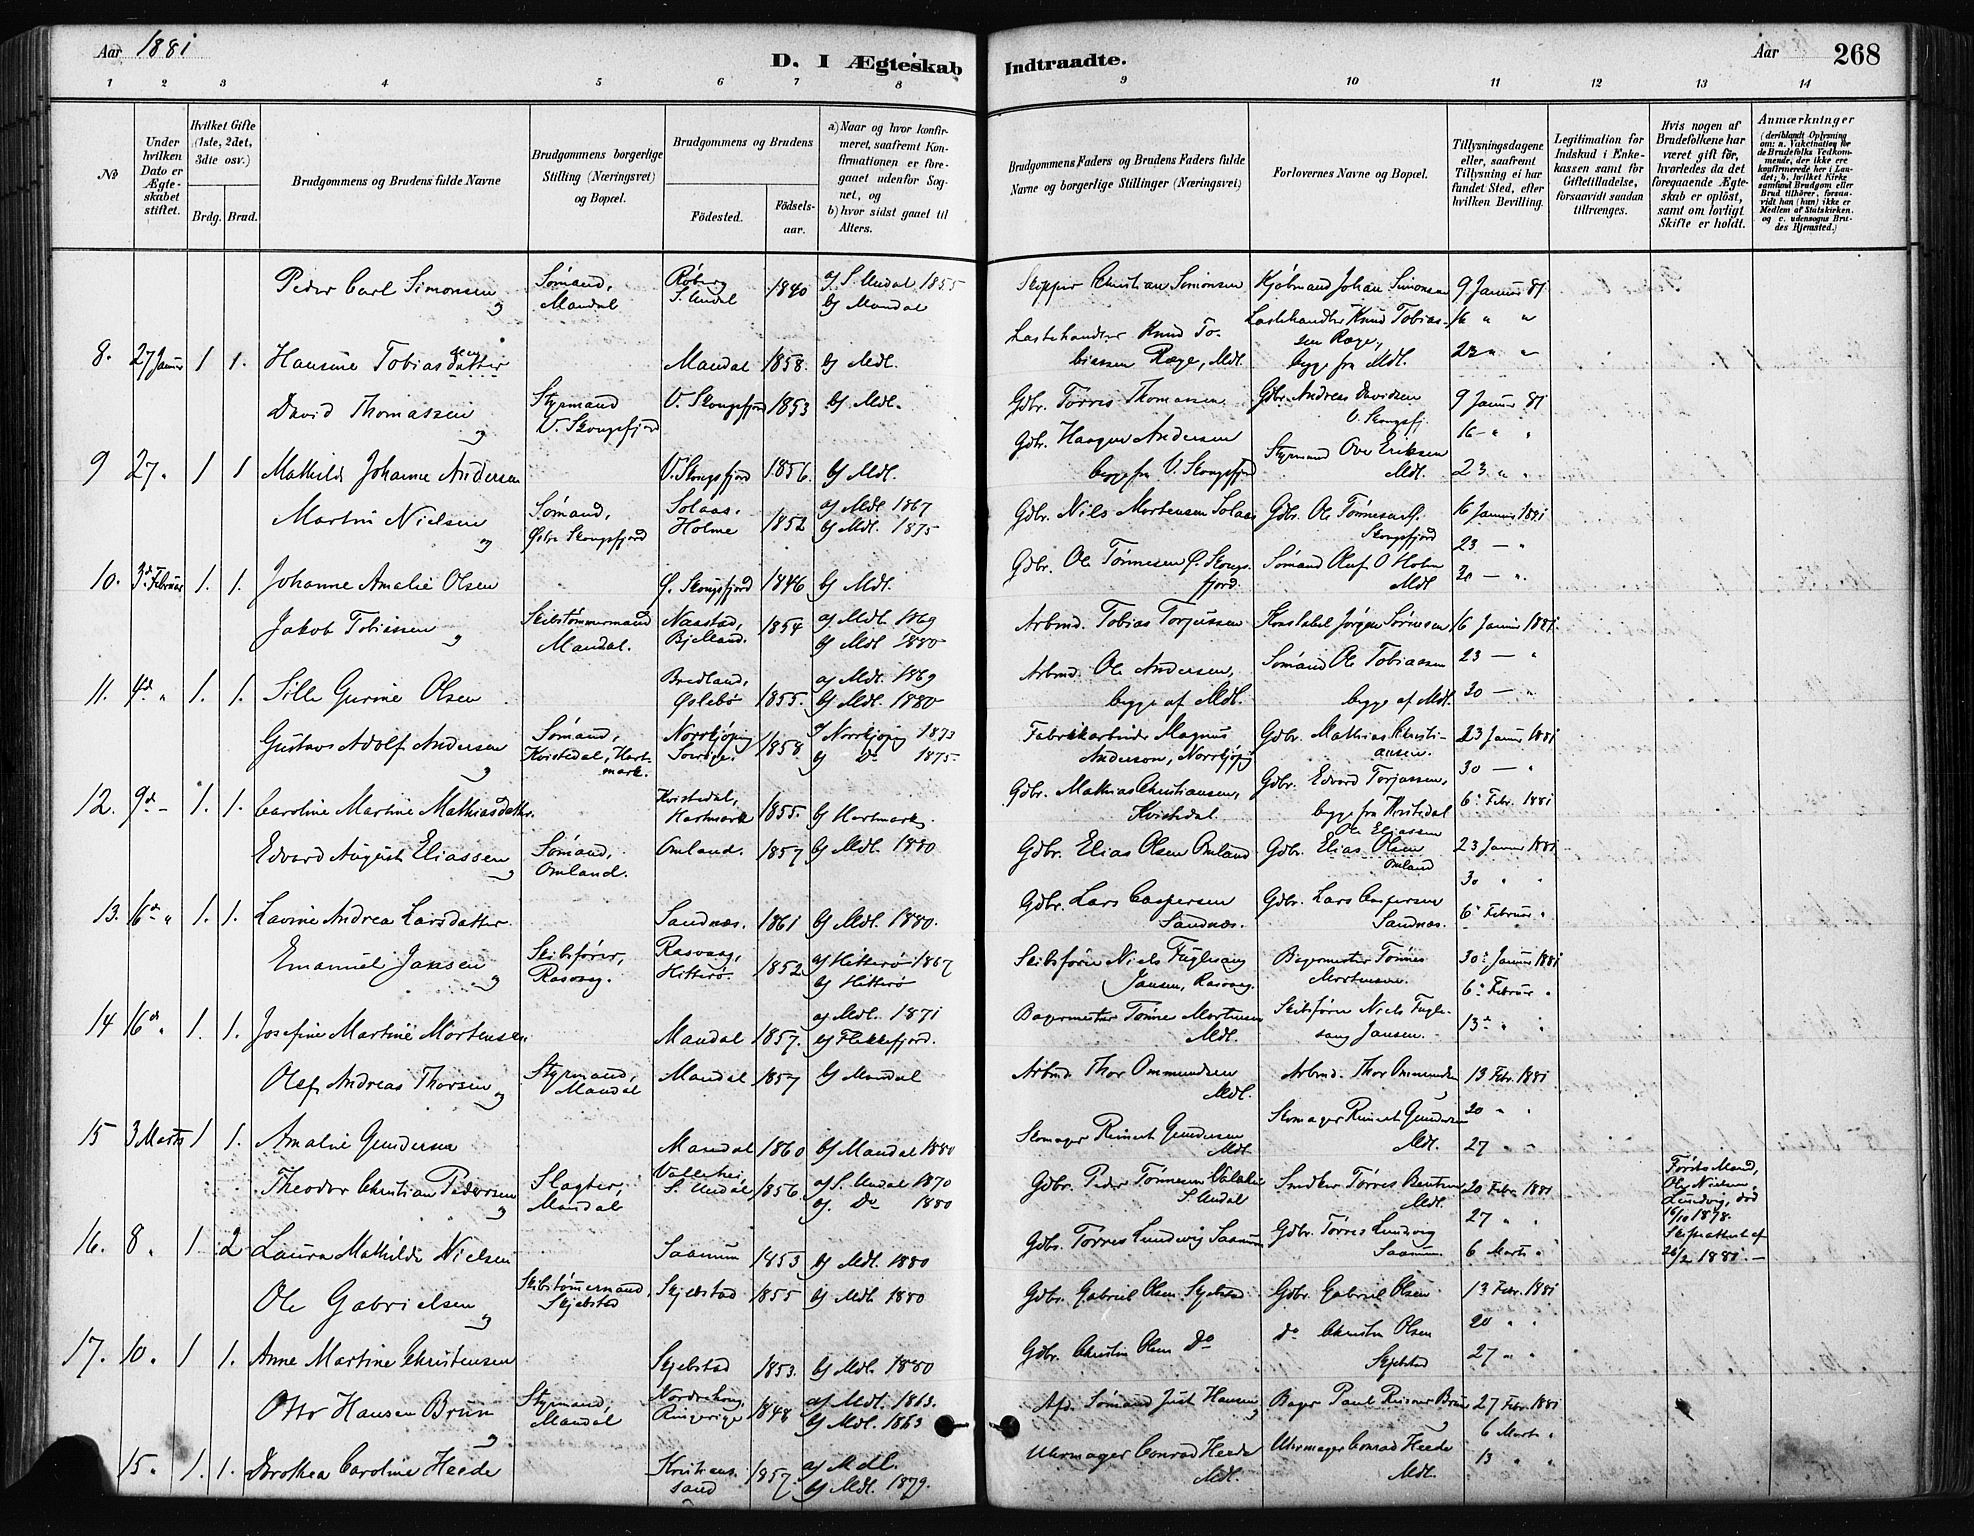 Aar 1881
D. I Ægteskab Indtraadte.
Aar
268
1 2 3 4 5 6 7 8 9 10 11 12 13 14
No
Under hvilken Dato er Ægteskabet stiftet.
Hvilket Gifte (1ste, 2det, 3die osv.)
Brdg. Brud.
Brudgommens og Brudens fulde Navne
Brudgommens borgerlige Stilling (Næringsvei) og Bopæl.
Brudgommens og Brudens
Fødested.
Fødsels-aar.
a) Naar og hvor konfirmeret, saafremt Konfirmationen er foregaaet udenfor Sognet, og
b) hvor sidst gaaet til Alters.
Brudgommens Faders og Brudens Faders fulde Navne og borgerlige Stillinger (Næringsvei)
Forlovernes Navne og Bopæl.
Tillysningsdagene eller, saafremt Tillysning ei har fundet Sted, efter hvilken Bevilling.
Legitimation for Indskud i Enkekassen samt for Giftetilladelse, forsaavidt saadan tiltrænges.
Hvis nogen af Brudefolkene har været gift før, hvorledes da det foregaaende Ægteskab er opløst, samt om lovligt Skifte er holdt.
Anmærkninger
(deriblandt Oplysning om: a. Vakcination for de Brudefolks Vedkommende, der ikke ere konfirmerede her i Landet; b. hvilket Kirkesamfund Brudgom eller Brud tilhører, forsaavidt han (hun) ikke er Medlem af Statskirken. og c. udensogns Brudes Hjemsted.)
Peder Carl Simonsen og Sømand, Mandal S. Undal 1840 a) S. Undal 1855 b) Mandal Skipper Christian Simonsen Kjøbmand Johan Simonsen 9 Januar 81
8. 27 Januar 1 1. Hansine Tobiasdatter Mandal 1858. b) Mdl. Knud Tobiassen Mdl. Knud Tobiassen begge fra Mdl. 16 " " 23 " "
David Thomassen og Styrmand V. Skougsfjord V. Skougsfjord 1853 b) Mdl. Gdbr. Tørres Thomassen Gdbr. Andreas Davidsen V. Skougsfj. 9 Januar 81
9 27 " 1 1 Mathilde Johanne Andersen V. Skougsfjord 1856. b) Mdl. Gdbr. Haagen Andersen begge fra V. Skougsfjord Styrmand Ove Eriksen Mdl. 16 - " " 23 " "
Martin Nielsen og Sømand, Østre Skougsfjord Solaas, Holme 1852 a) Mdl 1867 b) Mdl. 1875 Gdbr. Niels Mortensen Solaas Gdbr. Ole Tønnesen Ø. Skougsfjord 16 Januar 1881
10. 3d. Februar 1. 1. Johanne Amalie Olsen Ø. Skougsfjord 1846 b) Mdl. Gdbr. Ole Tønnesen Ø. Skougsfjord. Sømand Oluf O Holm Mdl 23 - " 30 - "
Jakob Tobiassen og Skibstømmermand Mandal. Naastad, Bjelland. 1854 a) Mdl. 1869 b) Mdl 1880 Arbmd. Tobias Torjussen Konstabel Jørgen Sørensen 16 Januar 1881
11. 4d " 1. 1. Sille Gurine Olsen Bredland, Øslebø 1855. a) Mdl. 1869 b) Mdl. 1880 Arbmd. Ole Andersen, begge af Mdl. Sømand Ole Tobiassen begge af Mdl. 23 - " 30 - "
Gustav Adolf Andersen og Sømand, Kvistedal, Hartmark. Norrkjøping Sverige. 1858 a) Norrkjøping 1873 b) Do 1875 Fabrikarbeider Magnus Anderson, Norrkjøping Gdbr. Mathias Christiansen. 23 Januar 1881
12. 9d - 1. 1. Caroline Martine Mathiasdatter. Kvistedal, Hartmark 1855. b) Hartmark. Gdbr. Mathias Christiansen, Kvistedal. Gdbr. Edvard Torjussen, begge fra Kvistedal 30 - " 6. Febr. 1881
Edvard August Eliassen og Sømand, Omland. Omland. 1857 b) Mdl. 1880 Gdbr. Elias Olsen Omland Ole Eliassen Gdbr. Elias Olsen Omland 23 Januar 1881
13. 16d " 1. 1. Lavine Andrea Larsdatter. Sandnæs. 1861 b) Mdl. 1880. Gdbr. Lars Caspersen Sandnæs. Gdbr. Lars Caspersen Sandnæs. 30 " " 6. Februar "
Emanuel Jansen og Skibsfører, Rasvaag. Rasvaag, Hitterø. 1852 a) Hitterø 1867 b) Hitterø Skibsfører Niels Fuglesang Jansen, Rasvaag. Bagermester Tønnes Mortensen. 30. Januar 1881
14 16d " 1. 1. Josefine Martine Mortensen Mandal 1857. a) Mdl. 1871 b) Flekkefjord. Bagermester Tønnes Mortensen Mdl. Skibsfører Niels Fuglesang Jansen. 6. Februar " 13d " "
Olef Andreas Thorsen og Styrmand, Mandal Mandal 1857 b) Mandal Arbmd. Thor Ommundsen Mdl. Arbmd. Thor Ommundsen 13 Febr. 1881
15 3 Marts 1 1. Amalie Gundersen Mandal 1860 b) Mandal 1880 Skomager Reinert Gundersen Mdl. Skomager Reinert Gundersen Mdl. 20 " " 27 " "
Theodor Christian Pedersen og Slagter, Mandal S. Undal 1856. a) S. Undal 1870 b) Do 1880 Gdbr. Peder Tønnesen S. Undal Snedker Tørres Berntsen Mdl. 20 Febr. 1881 Førits Mand, Ole Nielsen, Lundvig, død 16/10 1878. Skifteattest af 26/2 1881. -
16. 8 " 1 2 Laura Mathilde Nielsen Saanum 1853 b) Mdl. 1880 Gdbr. Tørres Lundvig Saanum Gdbr. Tørres Lundvig Saanum 27 " " 6 Marts "
Ole Gabrielsen og Skibstømmermand Skjebstad Skjebstad 1855 b) Mdl. 1880 Gdbr. Gabriel Olsen Skjebstad Gdbr. Gabriel Olsen 13 Febr. 1881
17. 10 " 1 1. Anne Martine Christensen Skjebstad 1853. b) Mdl. 1880 Gdbr. Christen Olsen Do do Christen Olsen Skjebstad 20 " " 27 " "
Otto Hansen Brun og Styrmand, Mandal Ringerige 1848 a) Mdl. 1863. b) Mdl. 1863 Afd. Sømand Just Hansen Bager Paul Brun 27 Febr. 1881
15 " 1. 1. Dorothea Caroline Heede Kristianssand 1857 a) Mdl. b) Mdl. 1879. Uhrmager Conrad Heede Mdl. Uhrmager Conrad Heede Mdl. 6 Marts " 13 " "